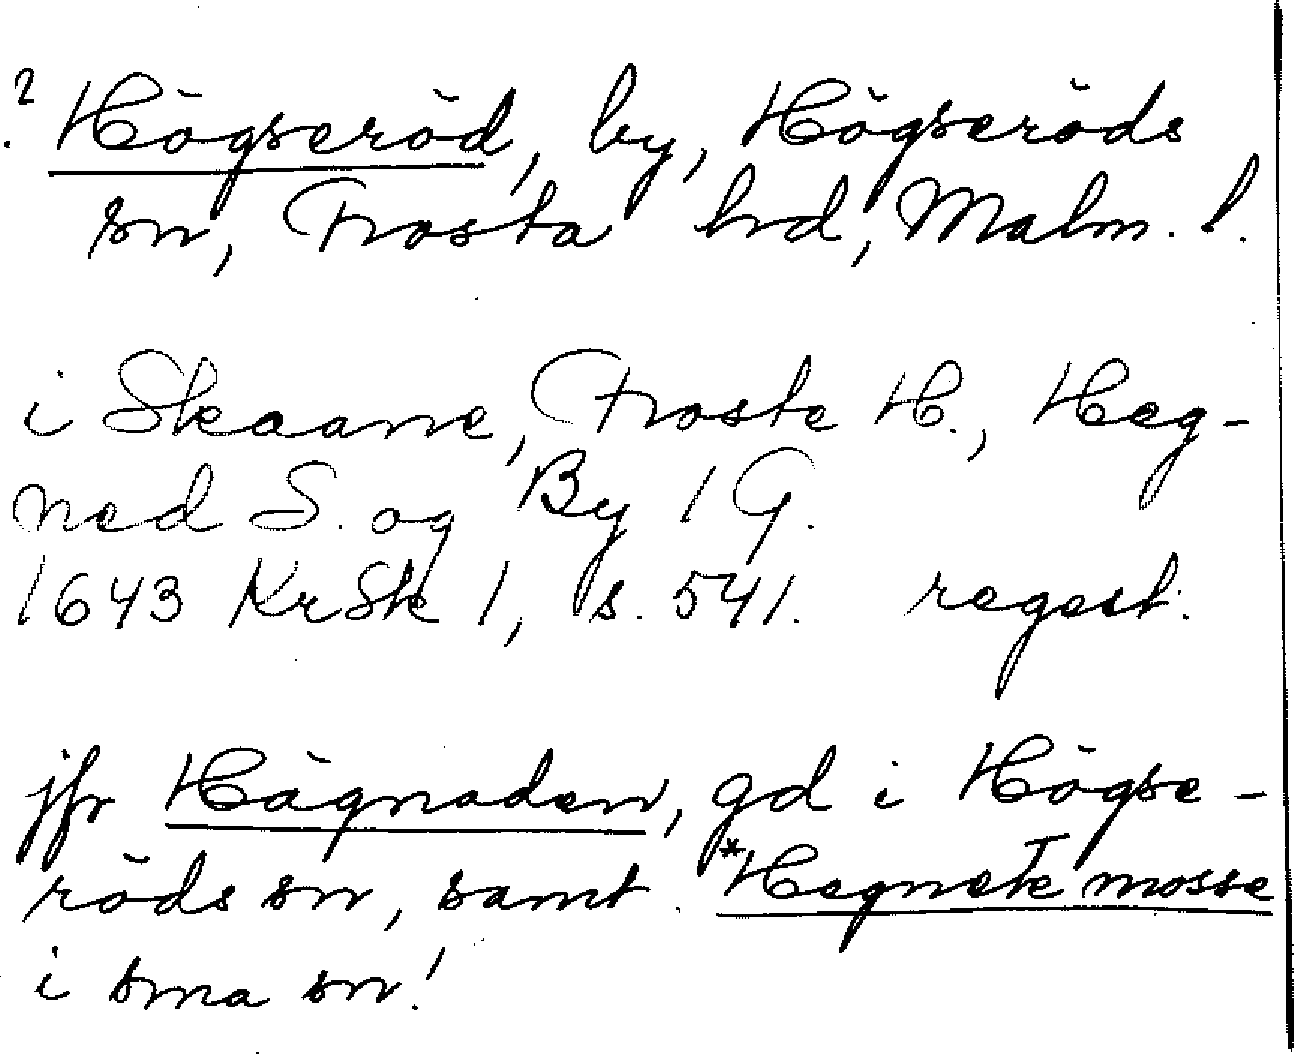 ? Högseröd, by, Högseröds
sn, Frosta hd, Malm. l.
i Skaane, Froste H., Heg-
ned S. og By 1 G.
1643 KrSk 1, s. 541. regest.
jfr Hägnaden, gd i Högse-
röds sn, samt *Hegnete mosse
i sma sn!